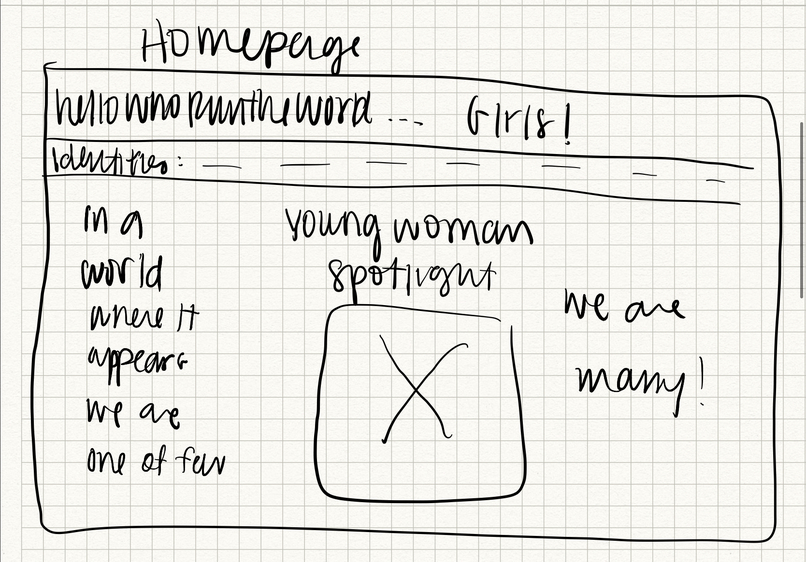 Homepage
hello who run the world ... Girls!
Identities:
in a
world
where it
appears
we are
one of few
young woman
spotlight
we are
many!